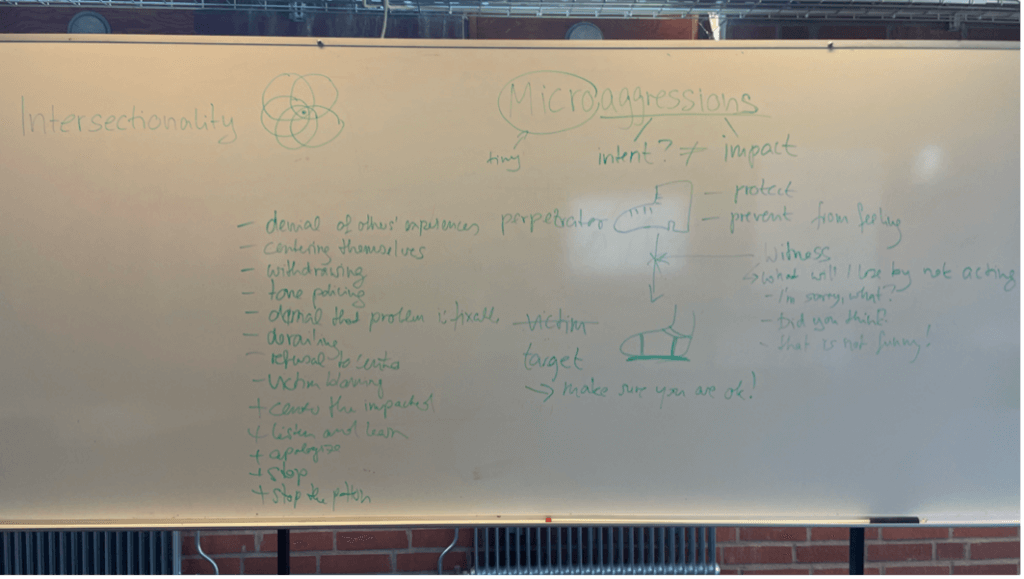 Intersectionality
Microaggressions
tiny
intent? ≠ impact
- denial of others' experiences
- centering themselves
- withdrawing
- tone policing
- denial that problem is fixable
- derailing
- refusal to center
- victim blaming
+ center the impacted
+ listen and learn
+ apologize
+ stop
+ stop the pattern
perpetrator
- protect
- prevent from feeling
Witness
→ what will I lose by not acting
- I'm sorry, what?
- Did you think?
- that is not funny!
victim
target
→ make sure you are ok!